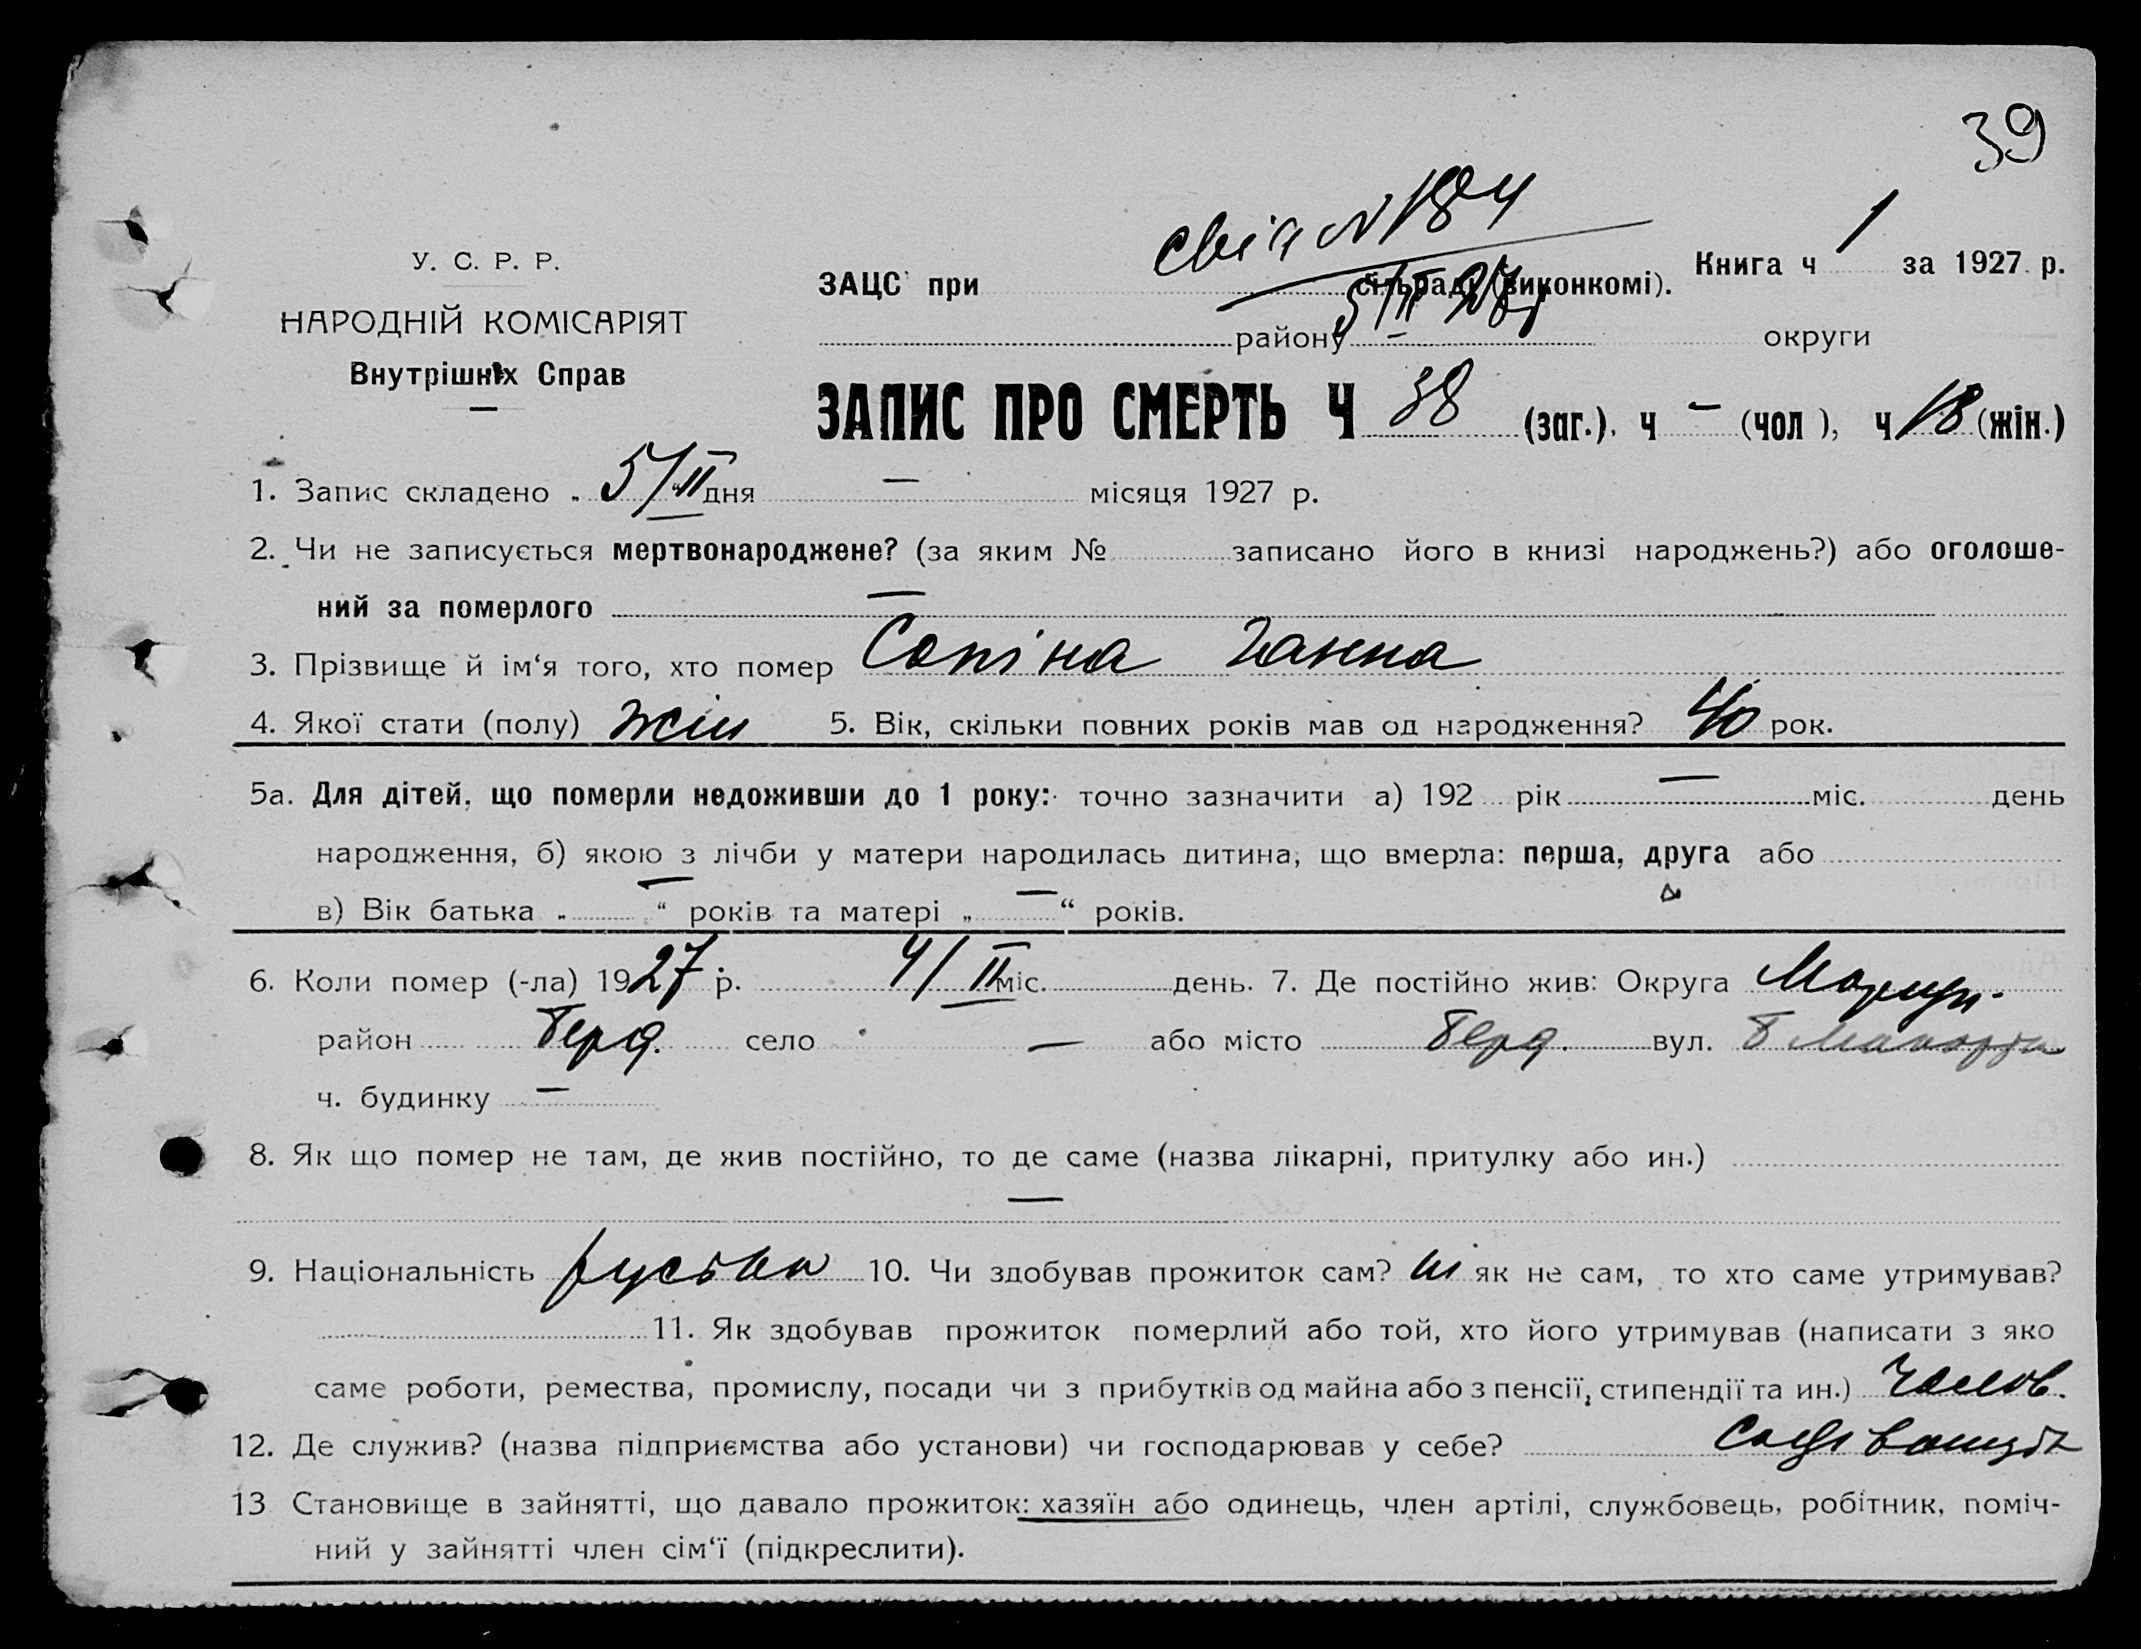 39
Свід N 184
У. С. Р. Р.
НАРОДНІЙ КОМІСАРІЯТ
Внутрішніх Справ
ЗАЦС при сільраді (виконкомі). Книга ч 1 за 1927 р.
5/II 27 р
району округи
ЗАПИС ПРО СМЕРТЬ Ч 38 (заг.), ч — (чол), ч 18 (жін.)
1. Запис складено „ 5/II “ дня — місяця 1927 р.
2. Чи не записується мертвонароджене? (за яким № записано його в книзі народжень?) або оголоше-
ний за померлого —
3. Прізвище й ім‘я того, хто помер Сопіна Ганна
4. Якої стати (полу) жін 5. Вік, скільки повних років мав од народження? 40 рок.
5а. Для дітей, що померли недоживши до 1 року: точно зазначити а) 192 рік — міс. день
народження, б) якою з лічби у матери народилась дитина, що вмерла: перша, друга або
в) Вік батька „ — “ років та матері „ — “ років.
6. Коли помер (-ла) 1927 р. 4/II міс. день. 7. Де постійно жив: Округа Маріуп.
район Берд. село — або місто Берд. вул.
ч. будинку —
8. Як що помер не там, де жив постійно, то де саме (назва лікарні, притулку або ин.)
—
9. Національність руська 10. Чи здобував прожиток сам? ні як не сам, то хто саме утримував?
11. Як здобував прожиток померлий або той, хто його утримував (написати з яко
саме роботи, ремества, промислу, посади чи з прибутків од майна або з пенсії, стипендії та ин.) чолов.
12. Де служив? (назва підприємства або установи) чи господарював у себе?
13 Становище в зайнятті, що давало прожиток: хазяїн або одинець, член артілі, службовець, робітник, поміч-
ний у зайнятті член сім‘ї (підкреслити).